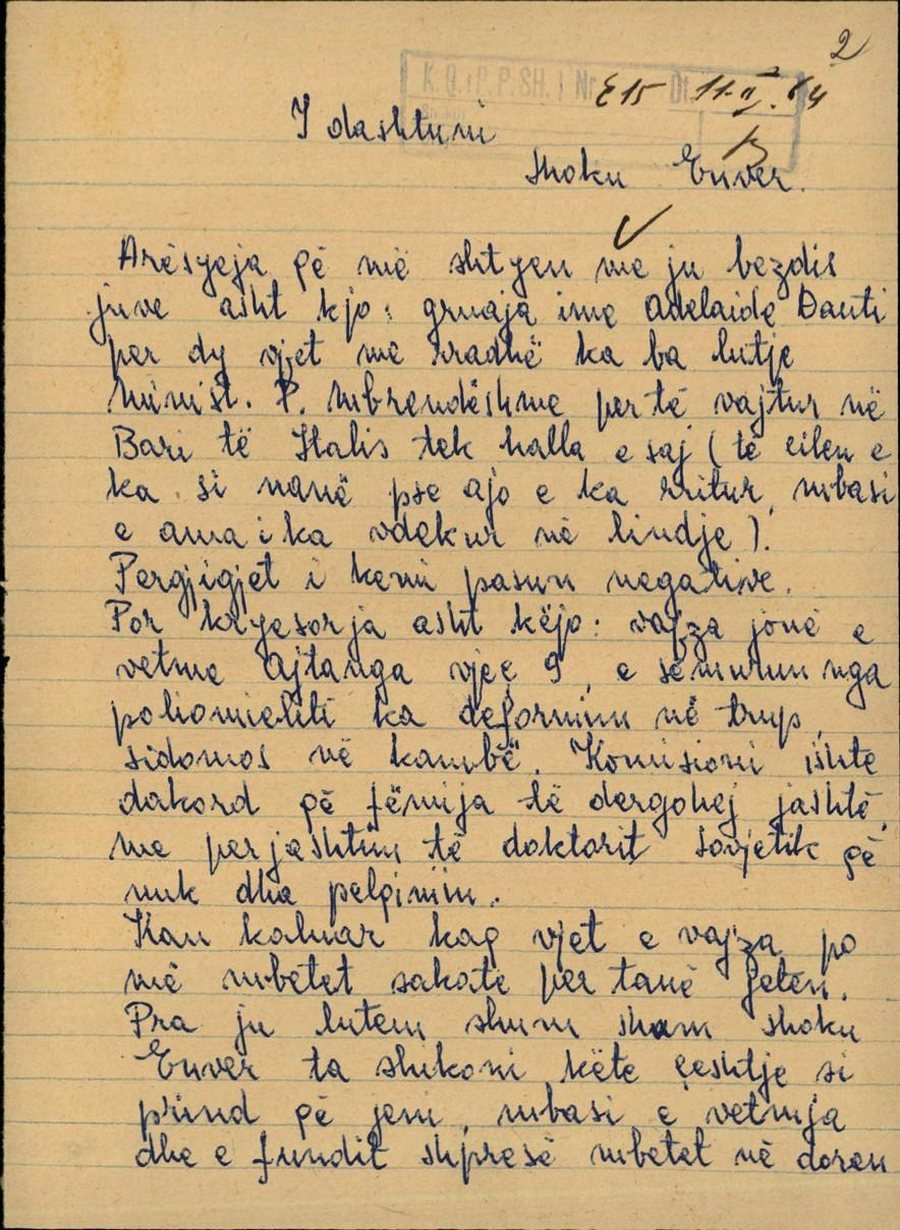 2
K.Q. i P.P.SH. Nr. 615 Dt. 11.II.64
I dashtuni
shoku Enver.
Arësyeja që më shtyen me ju bezdis
juve asht kjo: gruaja ime Adelaide Dauti
per dy vjet me rradhë ka ba lutje
Minist. P. Mbrendëshme per të vajtur në
Bari të Italis tek halla e saj (të cilen e
ka si nanë pse ajo e ka rritur, mbasi
e ama i ka vdekur në lindje).
Pergjigjet i kemi pasun negative.
Por kryesorja asht këjo: vajza jonë e
vetme Ajtanga vjeç 9, e sëmurun nga
poliomieliti ka deformim në trup,
sidomos në kambë. Komisioni ishte
dakord që fëmija të dergohej jashtë,
me perjashtim të doktorit sovjetik që
nuk dha pelqimin.
Kan kaluar kaq vjet e vajza po
më mbetet sakate per tanë jeten.
Pra ju lutem shum shum shoku
Enver ta shikoni këte çeshtje si
prind që jeni, mbasi e vetmja
dhe e fundit shpresë mbetet në doren